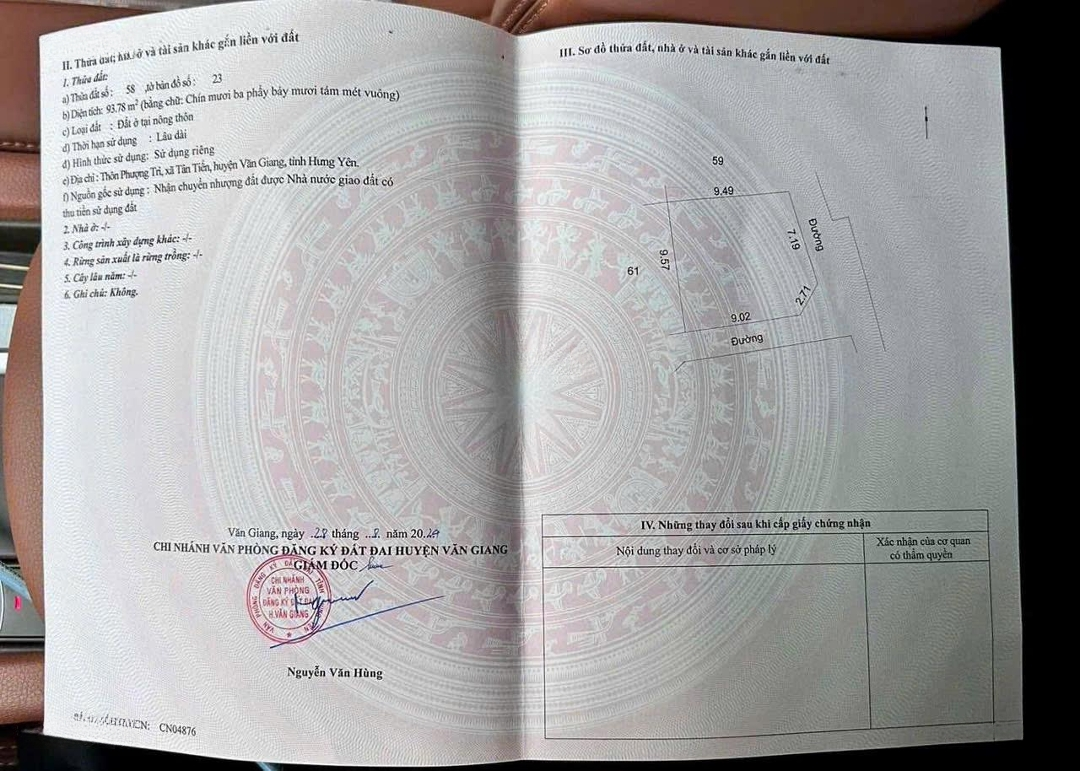 II. Thửa đất, nhà ở và tài sản khác gắn liền với đất
1. Thửa đất:
a) Thửa đất số: 58 ,tờ bản đồ số: 23
b) Diện tích: 93.78 m² (bằng chữ: Chín mươi ba phẩy bảy mươi tám mét vuông)
c) Loại đất : Đất ở tại nông thôn
d) Thời hạn sử dụng : Lâu dài
đ) Hình thức sử dụng: Sử dụng riêng
e) Địa chỉ : Thôn Phượng Trì, xã Tân Tiến, huyện Văn Giang, tỉnh Hưng Yên.
f) Nguồn gốc sử dụng : Nhận chuyển nhượng đất được Nhà nước giao đất có
thu tiền sử dụng đất
2. Nhà ở: -/-
3. Công trình xây dựng khác: -/-
4. Rừng sản xuất là rừng trồng: -/-
5. Cây lâu năm: -/-
6. Ghi chú: Không.
Văn Giang, ngày 28 tháng 8 năm 20
CHI NHÁNH VĂN PHÒNG ĐĂNG KÝ ĐẤT ĐAI HUYỆN VĂN GIANG
GIÁM ĐỐC
CHI NHÁNH
VĂN PHÒNG
ĐĂNG KÝ ĐẤT ĐAI
H.VĂN GIANG
Nguyễn Văn Hùng
CN04876
III. Sơ đồ thửa đất, nhà ở và tài sản khác gắn liền với đất
59
9.49
Đường
7.19
9.57
61
2.71
9.02
Đường
IV. Những thay đổi sau khi cấp giấy chứng nhận
Nội dung thay đổi và cơ sở pháp lý
Xác nhận của cơ quan
có thẩm quyền